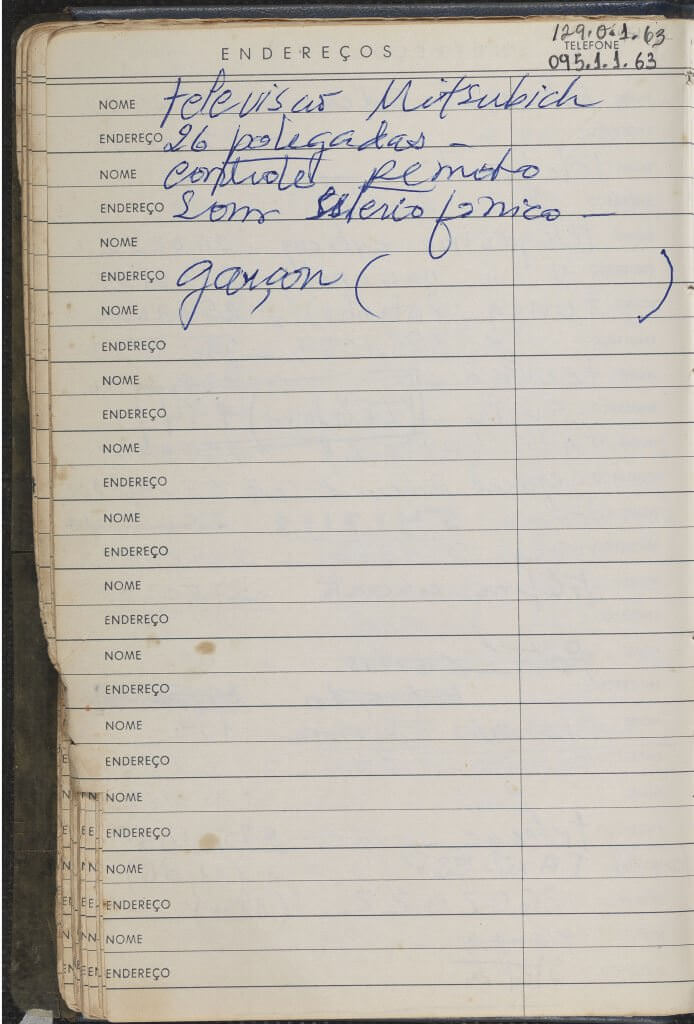 129.0.1.63
ENDEREÇOS
TELEFONE
095.1.1.63
NOME televisão Mitsubich
ENDEREÇO 26 polegadas -
NOME controles remoto
ENDEREÇO Som steriofonico -
NOME
ENDEREÇO garçon ( )
NOME
ENDEREÇO
NOME
ENDEREÇO
NOME
ENDEREÇO
NOME
ENDEREÇO
NOME
ENDEREÇO
NOME
ENDEREÇO
NOME
ENDEREÇO
NOME
ENDEREÇO
NOME
ENDEREÇO
NOME
ENDEREÇO
NOME
ENDEREÇO